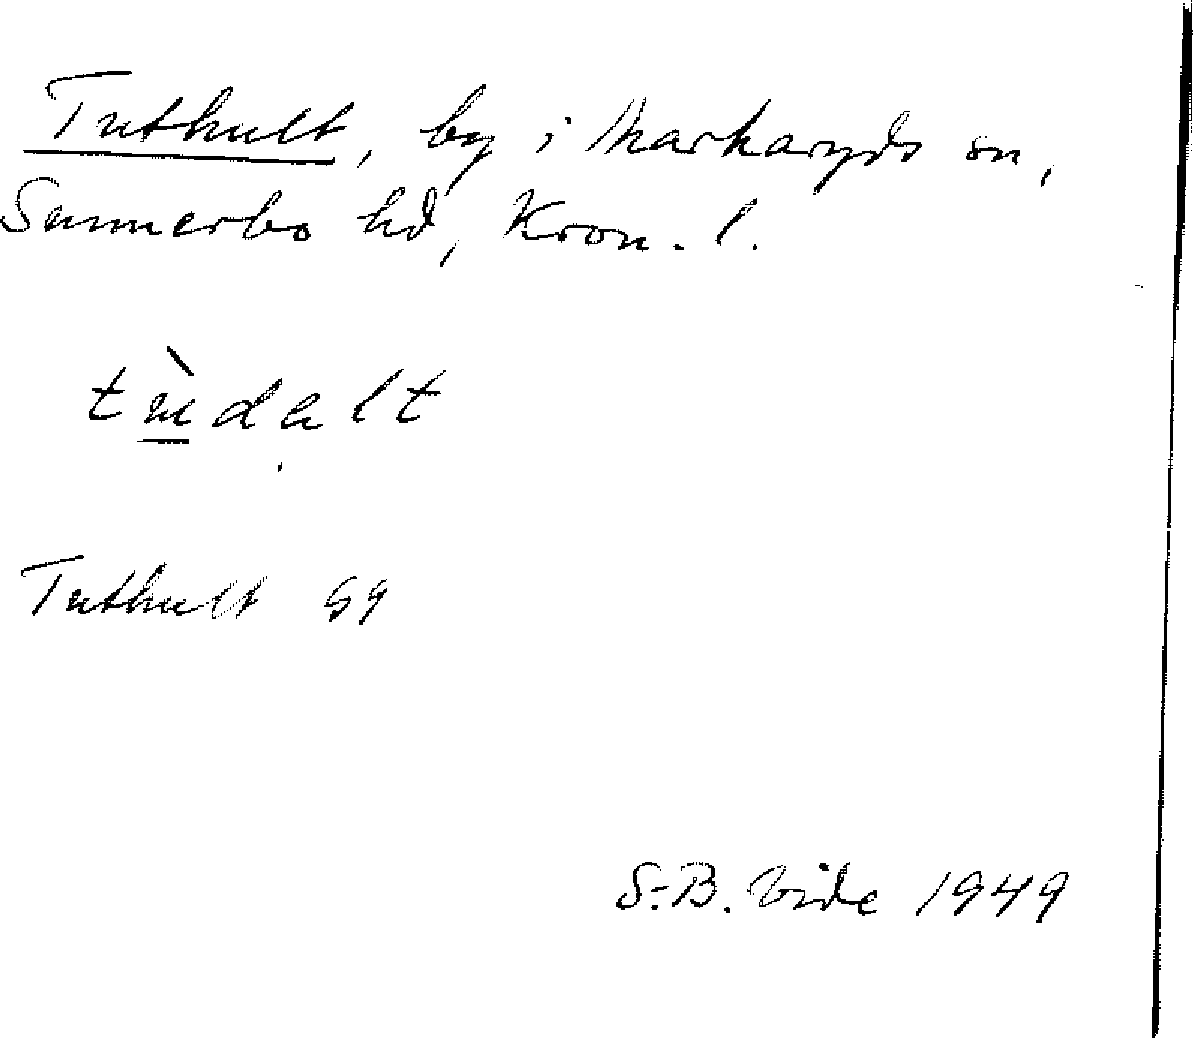 Tuthult, by i Markaryds sn,
Sunnerbo hd, Kron. l.
tɯ̲̀dalt
Tuthult GG
S.-B. Vide 1949